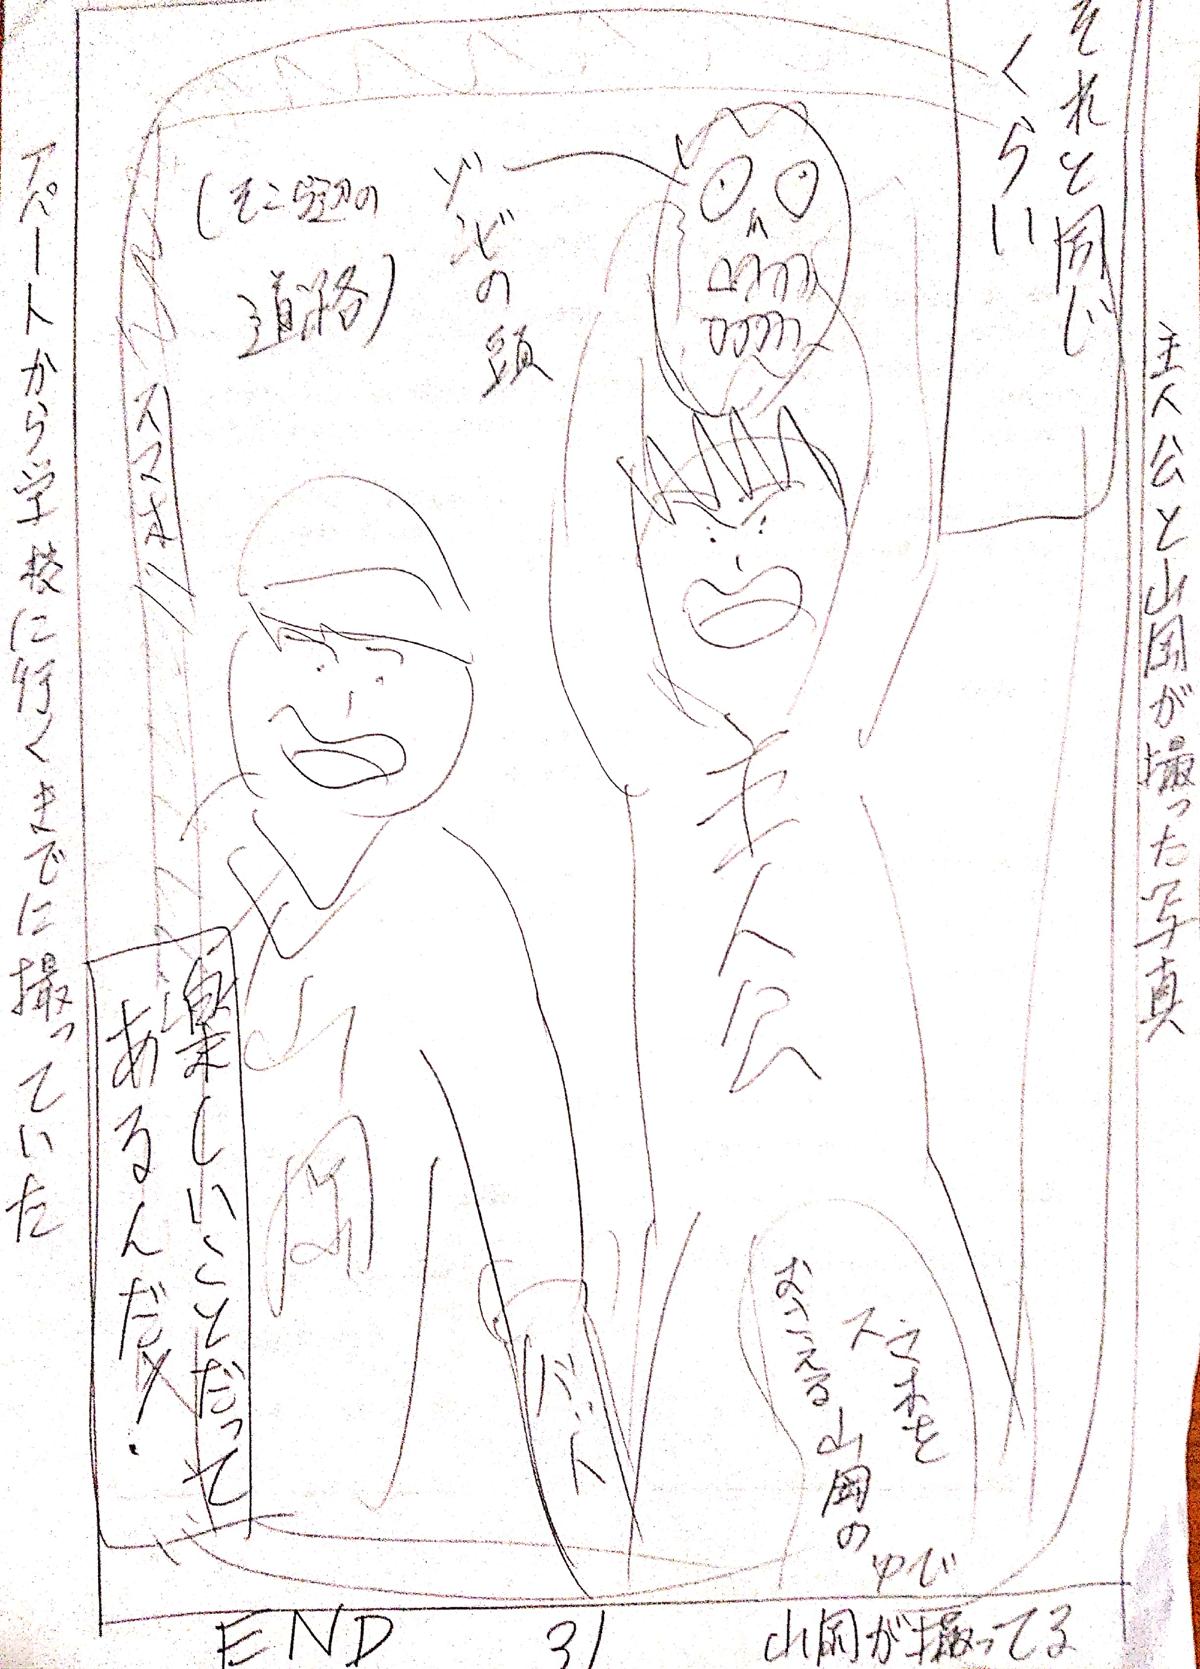 主人公と山岡が撮った写真
それと同じ
くらい
ゾンビの
頭
(そこら辺の
道路)
スマホ
主人公
山岡
バット
スマホを
山岡の
ゆび
楽しいことだって
あるんだ!
アパートから学校に行くまでに撮っていた
END
31
山岡が撮ってる